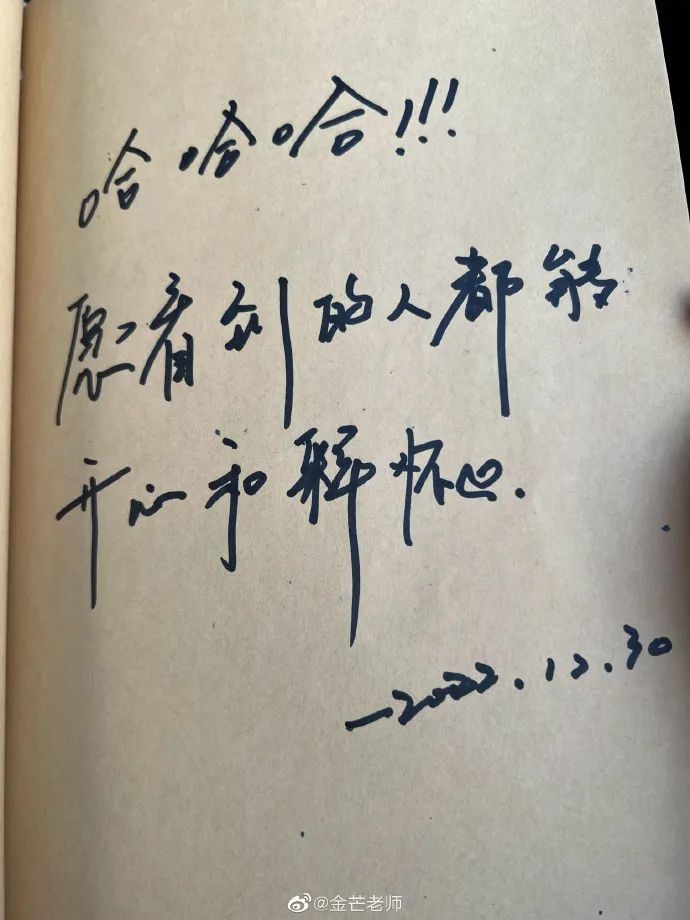 哈哈哈!!!
愿看到的人都能
开心和释怀.
—2022.12.30
@金芒老师